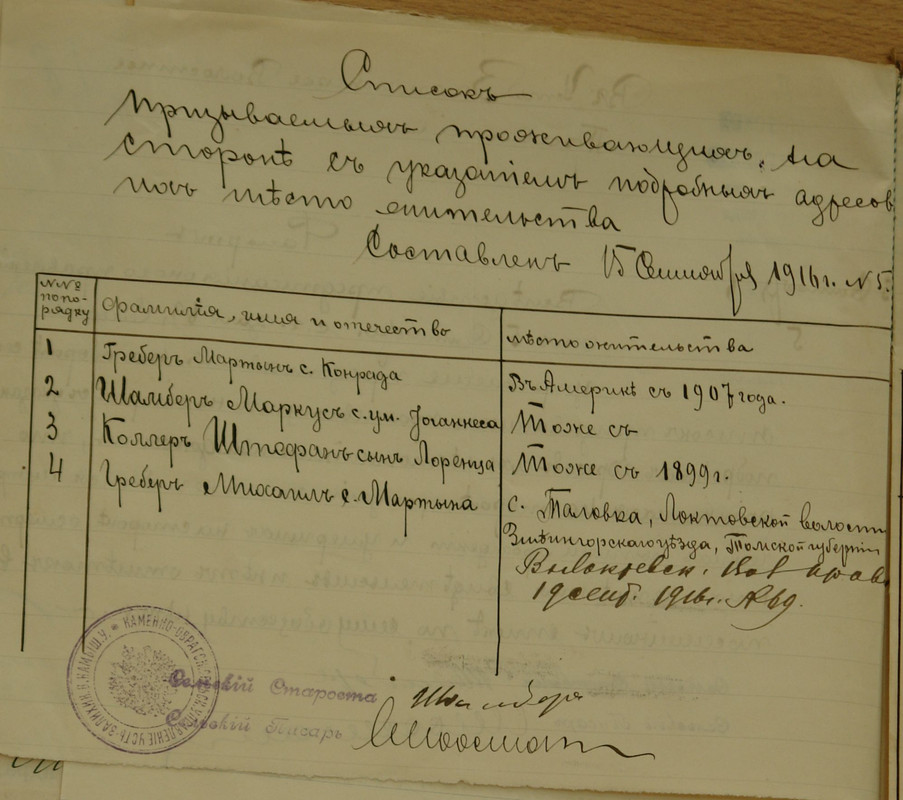 Списокъ
призываемыхъ проживающихъ на
сторонѣ съ указаніемъ подробныхъ адресовъ
ихъ мѣсто жительства
Составленъ 15 Сентября 1916 г. N 5.
NNº попо-рядку
Фамилія, имя и отечество
мѣстожительства
1 Греберъ Мартынъ с. Конрада
Въ Америкѣ съ 1907 года.
2 Шамберъ Маркусъ с. ум. Іоганнеса
Тоже съ
3 Коллеръ Штефанъ сынъ Лоренца
Тоже съ 1899 г.
4 Греберъ Михаилъ с. Мартына
с. Таловка, Локтовской волости
Змѣиногорскаго уѣзда, Томской губерніи
19 сент. 1916 г. № 69.
КАМЕННО-ОВРАГСК. СЕЛЬСК. УПРАВЛЕНІЕ УСТЬ-ЗАЛИХИН. В. КАМЫШ. У.
Сельскій Староста Шамберъ
Сельскій Писарь